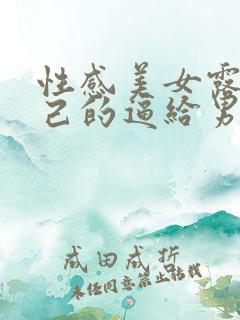 性感美女露
己的逼给男
成田成折
未经同意禁止转载